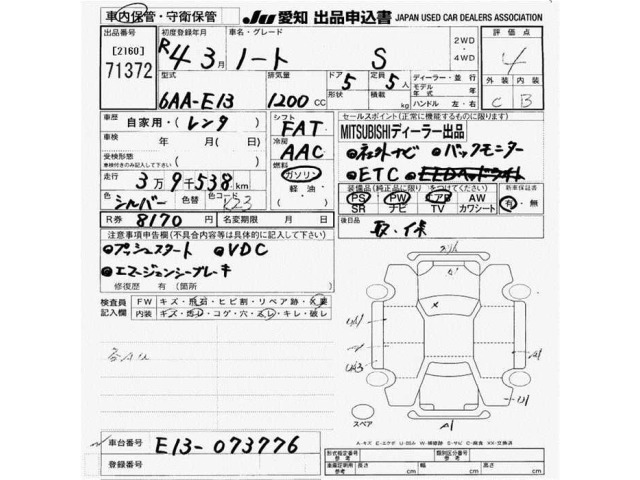 車内保管・守衛保管
JU 愛知 出品申込書 JAPAN USED CAR DEALERS ASSOCIATION
出品番号
[2160]
71372
初度登録年月
R4年3月
車名・グレード
ノート S
2WD
・
4WD
評価点
4
外装 内装
C B
型式
6AA-E13
排気量
1200 CC
ドア 5
形状
定員 5 人
積載 kg
ディーラー・並行
モデル年式
ハンドル 左・右
車歴 自家用・(レンタ)
車検 年 月(日)
受検形態
(車検付きのみ記入して下さい)
走行 3万9千538km
色 シルバー 色替 色コード K23
シフト
FAT
冷房
AAC
燃料
ガソリン
軽油
R券 8170円 名変期限 月 日
セールスポイント(正常に機能するものに限ります)
MITSUBISHIディーラー出品
●社外ナビ ●バックモニター
●ETC
装備品(純正品に限り○をつけてください)
PS PW AW
SR ナビ TV カワシート
新車保証書
有・無
後日品
取・保
注意事項申告欄(不具合内容等は具体的に記入して下さい)
●プッシュスタート ●VDC
●エマージェンシーブレーキ
修復歴 有(箇所 )
検査員記入欄
FW キズ・飛石・ヒビ割・リペア跡・X要
内装 キズ・汚レ・コゲ・穴・スレ・キレ・破レ
各A1U
スペア
A-キズ E-エクボ U-凹み W-補修跡 S-サビ C-腐食 XX-交換済
車台番号 E13-073776
登録番号
形式指定番号
参考
類別区分番号
参考
車庫証明用
参考
長さ cm 幅 cm 高さ cm